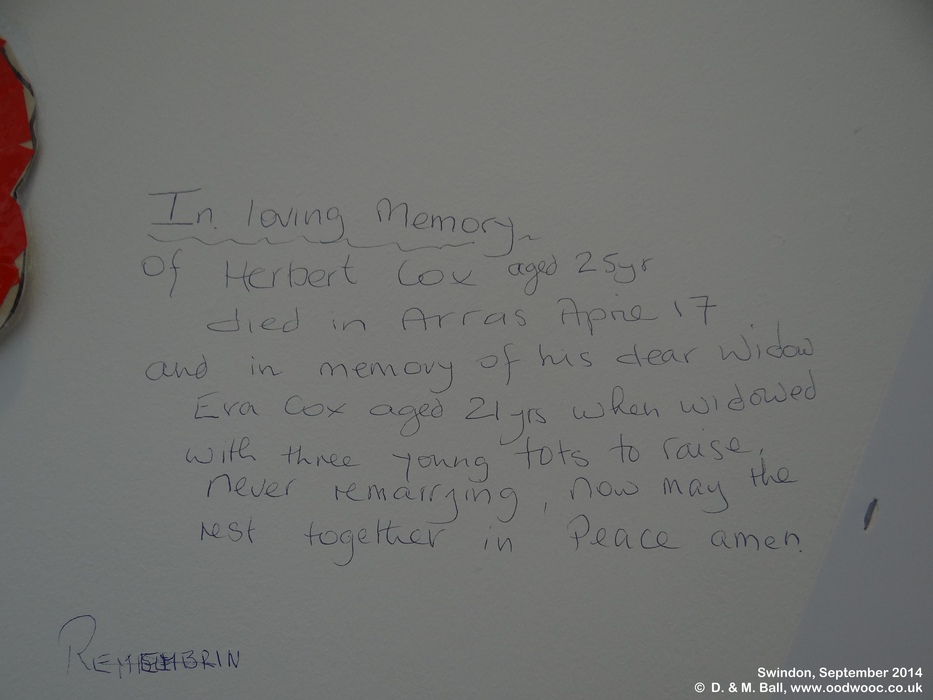 In loving Memory
Of Herbert Cox aged 25yr
died in Arras Aprie 17
and in memory of his dear Widow
Eva Cox aged 21yrs when widowed
with three young tots to raise,
never remarrying, now may the
rest together in Peace amen.
Swindon, September 2014
© D. & M. Ball, www.oodwooc.co.uk